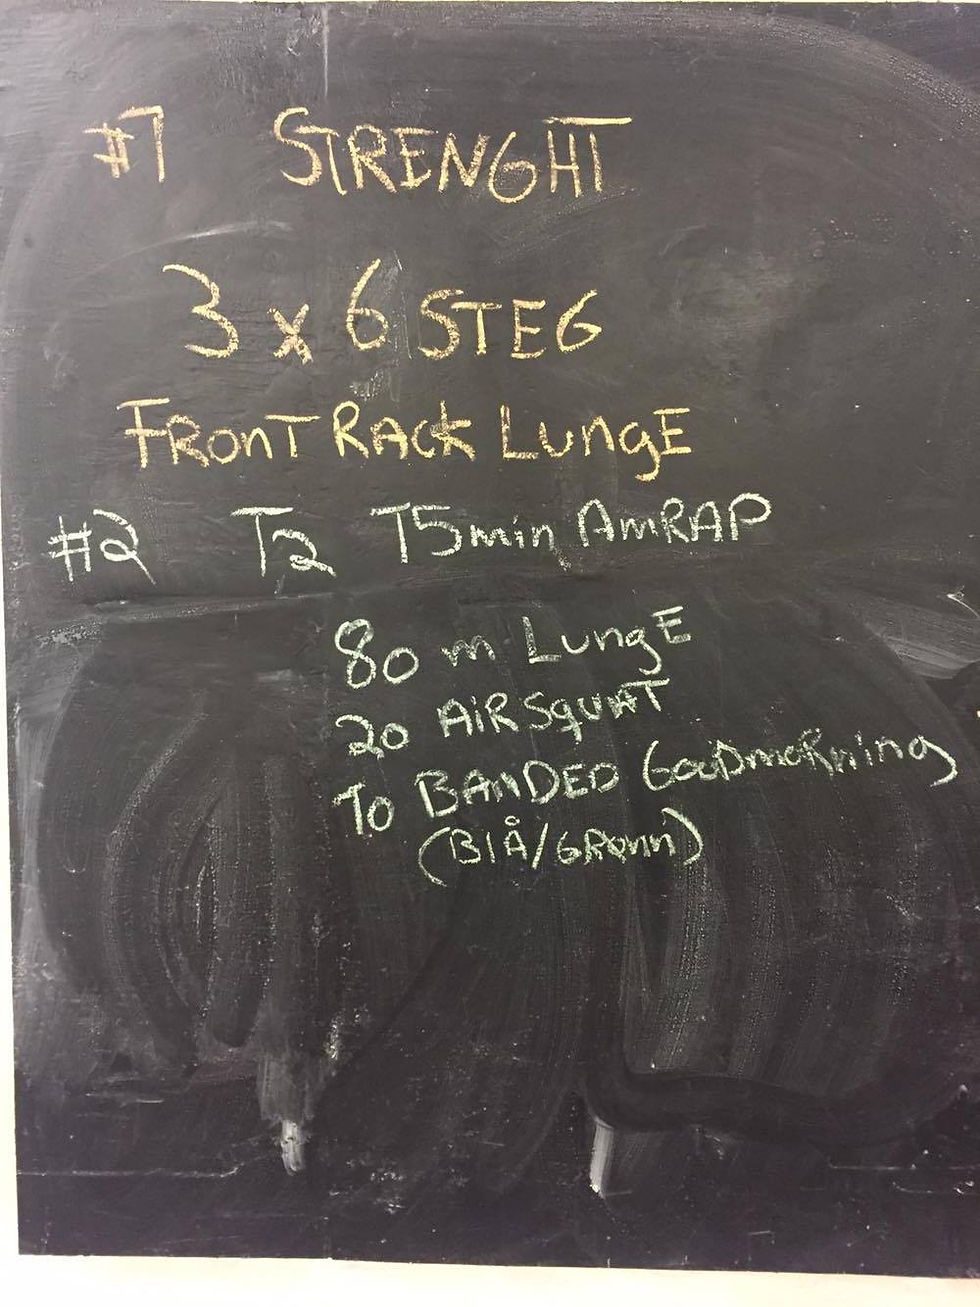 #1 STRENGHT
3 x 6 STEG
FRONT RACK LUNGE
#2 T2 15min AMRAP
80 m LUNGE
20 AIR SQUAT
10 BANDED GOODMORNING
(BlÅ/GRønn)